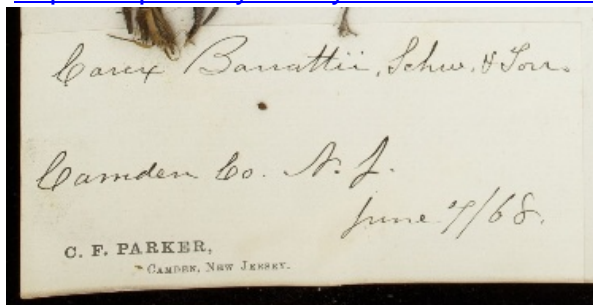 Carex Barrattii, Schw. & Torr.
Camden Co. N. J.
June 7/68.
C. F. PARKER,
CAMDEN, NEW JERSEY.